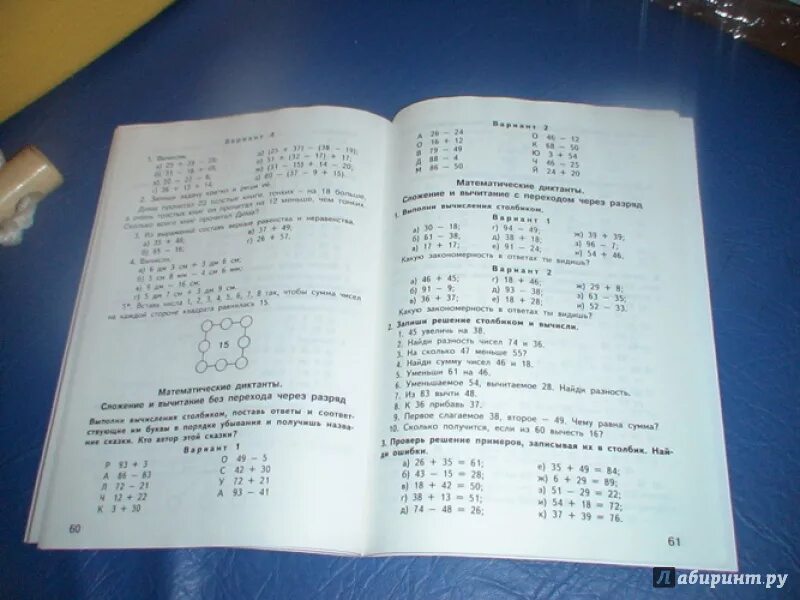 Вариант 4
1. Вычисли.
а) 25 + 23 − 28; д) (25 + 37) − (38 − 19);
б) 31 − 18 + 28; е) 51 + (32 − 17) + 17;
в) 50 − 22 − 8; ж) (31 − 15) + 14 − 20;
г) 36 + 13 + 14; з) 80 − (37 − 9 + 15).
2. Запиши задачу кратко и реши её.
Дима прочитал 23 толстые книги, тонких − на 18 больше,
а очень толстых книг он прочитал на 12 меньше, чем тонких.
Сколько всего книг прочитал Дима?
3. Из выражений составь верные равенства и неравенства.
а) 35 + 48; в) 37 + 49;
б) 65 − 16; г) 26 + 57.
4. Вычисли.
а) 6 дм 3 см + 3 дм 6 см;
б) 5 см 8 мм − 4 см 6 мм;
в) 9 дм − 16 см;
г) 5 дм 7 см + 3 дм 9 см.
5*. Вставь числа 1, 2, 3, 4, 5, 6, 7, 8 так, чтобы сумма чисел
на каждой стороне квадрата равнялась 15.
15
Математические диктанты.
Сложение и вычитание без перехода через разряд
Выполни вычисления столбиком, поставь ответы и соответ-
ствующие им буквы в порядке убывания и получишь назва-
ние сказки. Кто автор этой сказки?
Вариант 1
Р 93 + 3 О 49 − 5
А 86 − 63 С 42 + 30
Л 72 − 21 У 72 + 21
Ч 12 + 22 А 93 − 41
К 3 + 30
60
Вариант 2
А 26 − 24 О 46 − 12
О 16 + 12 К 68 − 50
В 79 − 49 Ю 3 + 54
Д 88 − 4 Ч 46 − 25
М 86 − 50 Й 24 + 20
Математические диктанты.
Сложение и вычитание с переходом через разряд
1. Выполни вычисления столбиком.
Вариант 1
а) 30 − 18; г) 94 − 49; ж) 39 + 39;
б) 61 − 38; д) 38 + 18; з) 96 − 7;
в) 17 + 17; е) 91 − 24; и) 54 + 46.
Какую закономерность в ответах ты видишь?
Вариант 2
а) 46 + 45; г) 18 + 46; ж) 29 + 8;
б) 91 − 9; д) 93 − 38; з) 63 − 35;
в) 36 + 37; е) 18 + 28; и) 52 − 33.
Какую закономерность в ответах ты видишь?
2. Запиши решение столбиком и вычисли.
1. 45 увеличь на 38.
2. Найди разность чисел 74 и 36.
3. На сколько 47 меньше 55?
4. Найди сумму чисел 46 и 18.
5. Уменьши 61 на 46.
6. Уменьшаемое 54, вычитаемое 28. Найди разность.
7. Из 83 вычти 48.
8. К 36 прибавь 37.
9. Первое слагаемое 38, второе − 49. Чему равна сумма?
10. Сколько получится, если из 60 вычесть 16?
3. Проверь решение примеров, записывая их в столбик. Най-
ди ошибки.
а) 26 + 35 = 61; е) 35 + 49 = 84;
б) 43 − 15 = 28; ж) 6 + 29 = 89;
в) 18 + 42 = 50; з) 51 − 29 = 22;
г) 38 + 13 = 51; и) 54 + 18 = 72;
д) 74 − 48 = 26; к) 37 + 39 = 76.
61
Лабиринт.ру